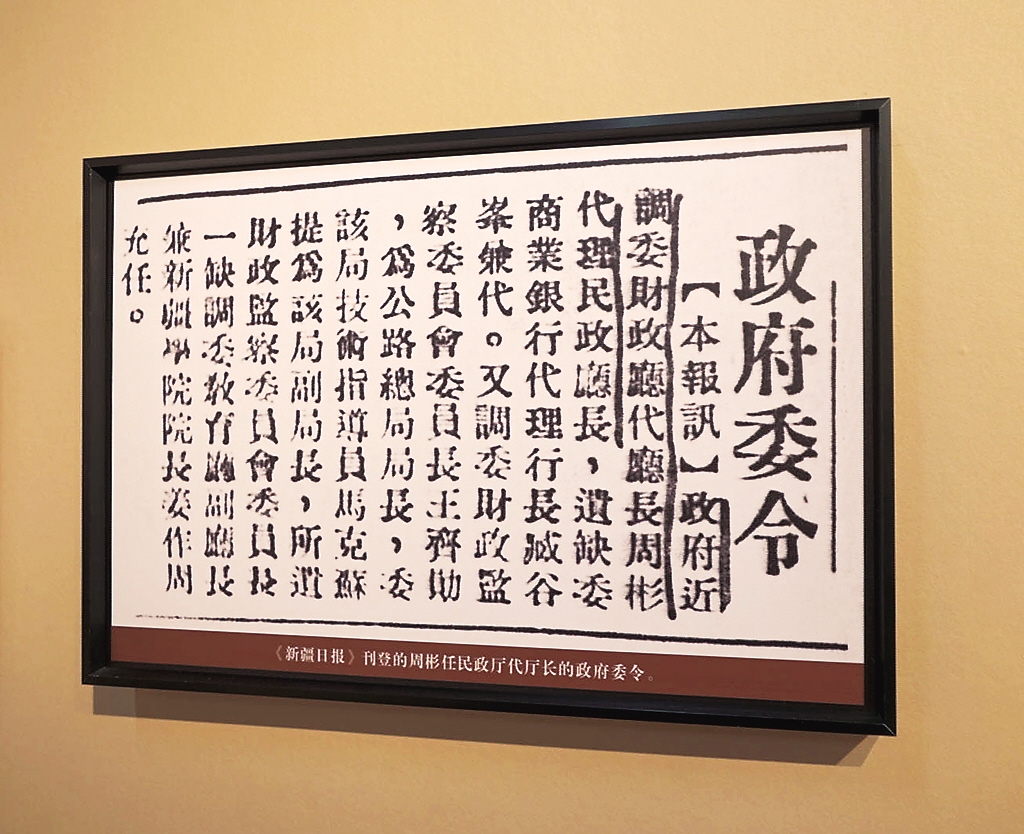 政府委令
【本報訊】政府近
調委財政廳代廳長周彬
代理民政廳長，遺缺委
商業銀行代理行長臧谷
峯兼代。又調委財政監
察委員會委員長王齊勛
，爲公路總局局長，委
該局技術指導員馬克蘇
提爲該局副局長，所遺
財政監察委員會委員長
一缺調委教育廳副廳長
兼新疆學院院長姜作周
充任。
《新疆日报》刊登的周彬任民政厅代厅长的政府委令。